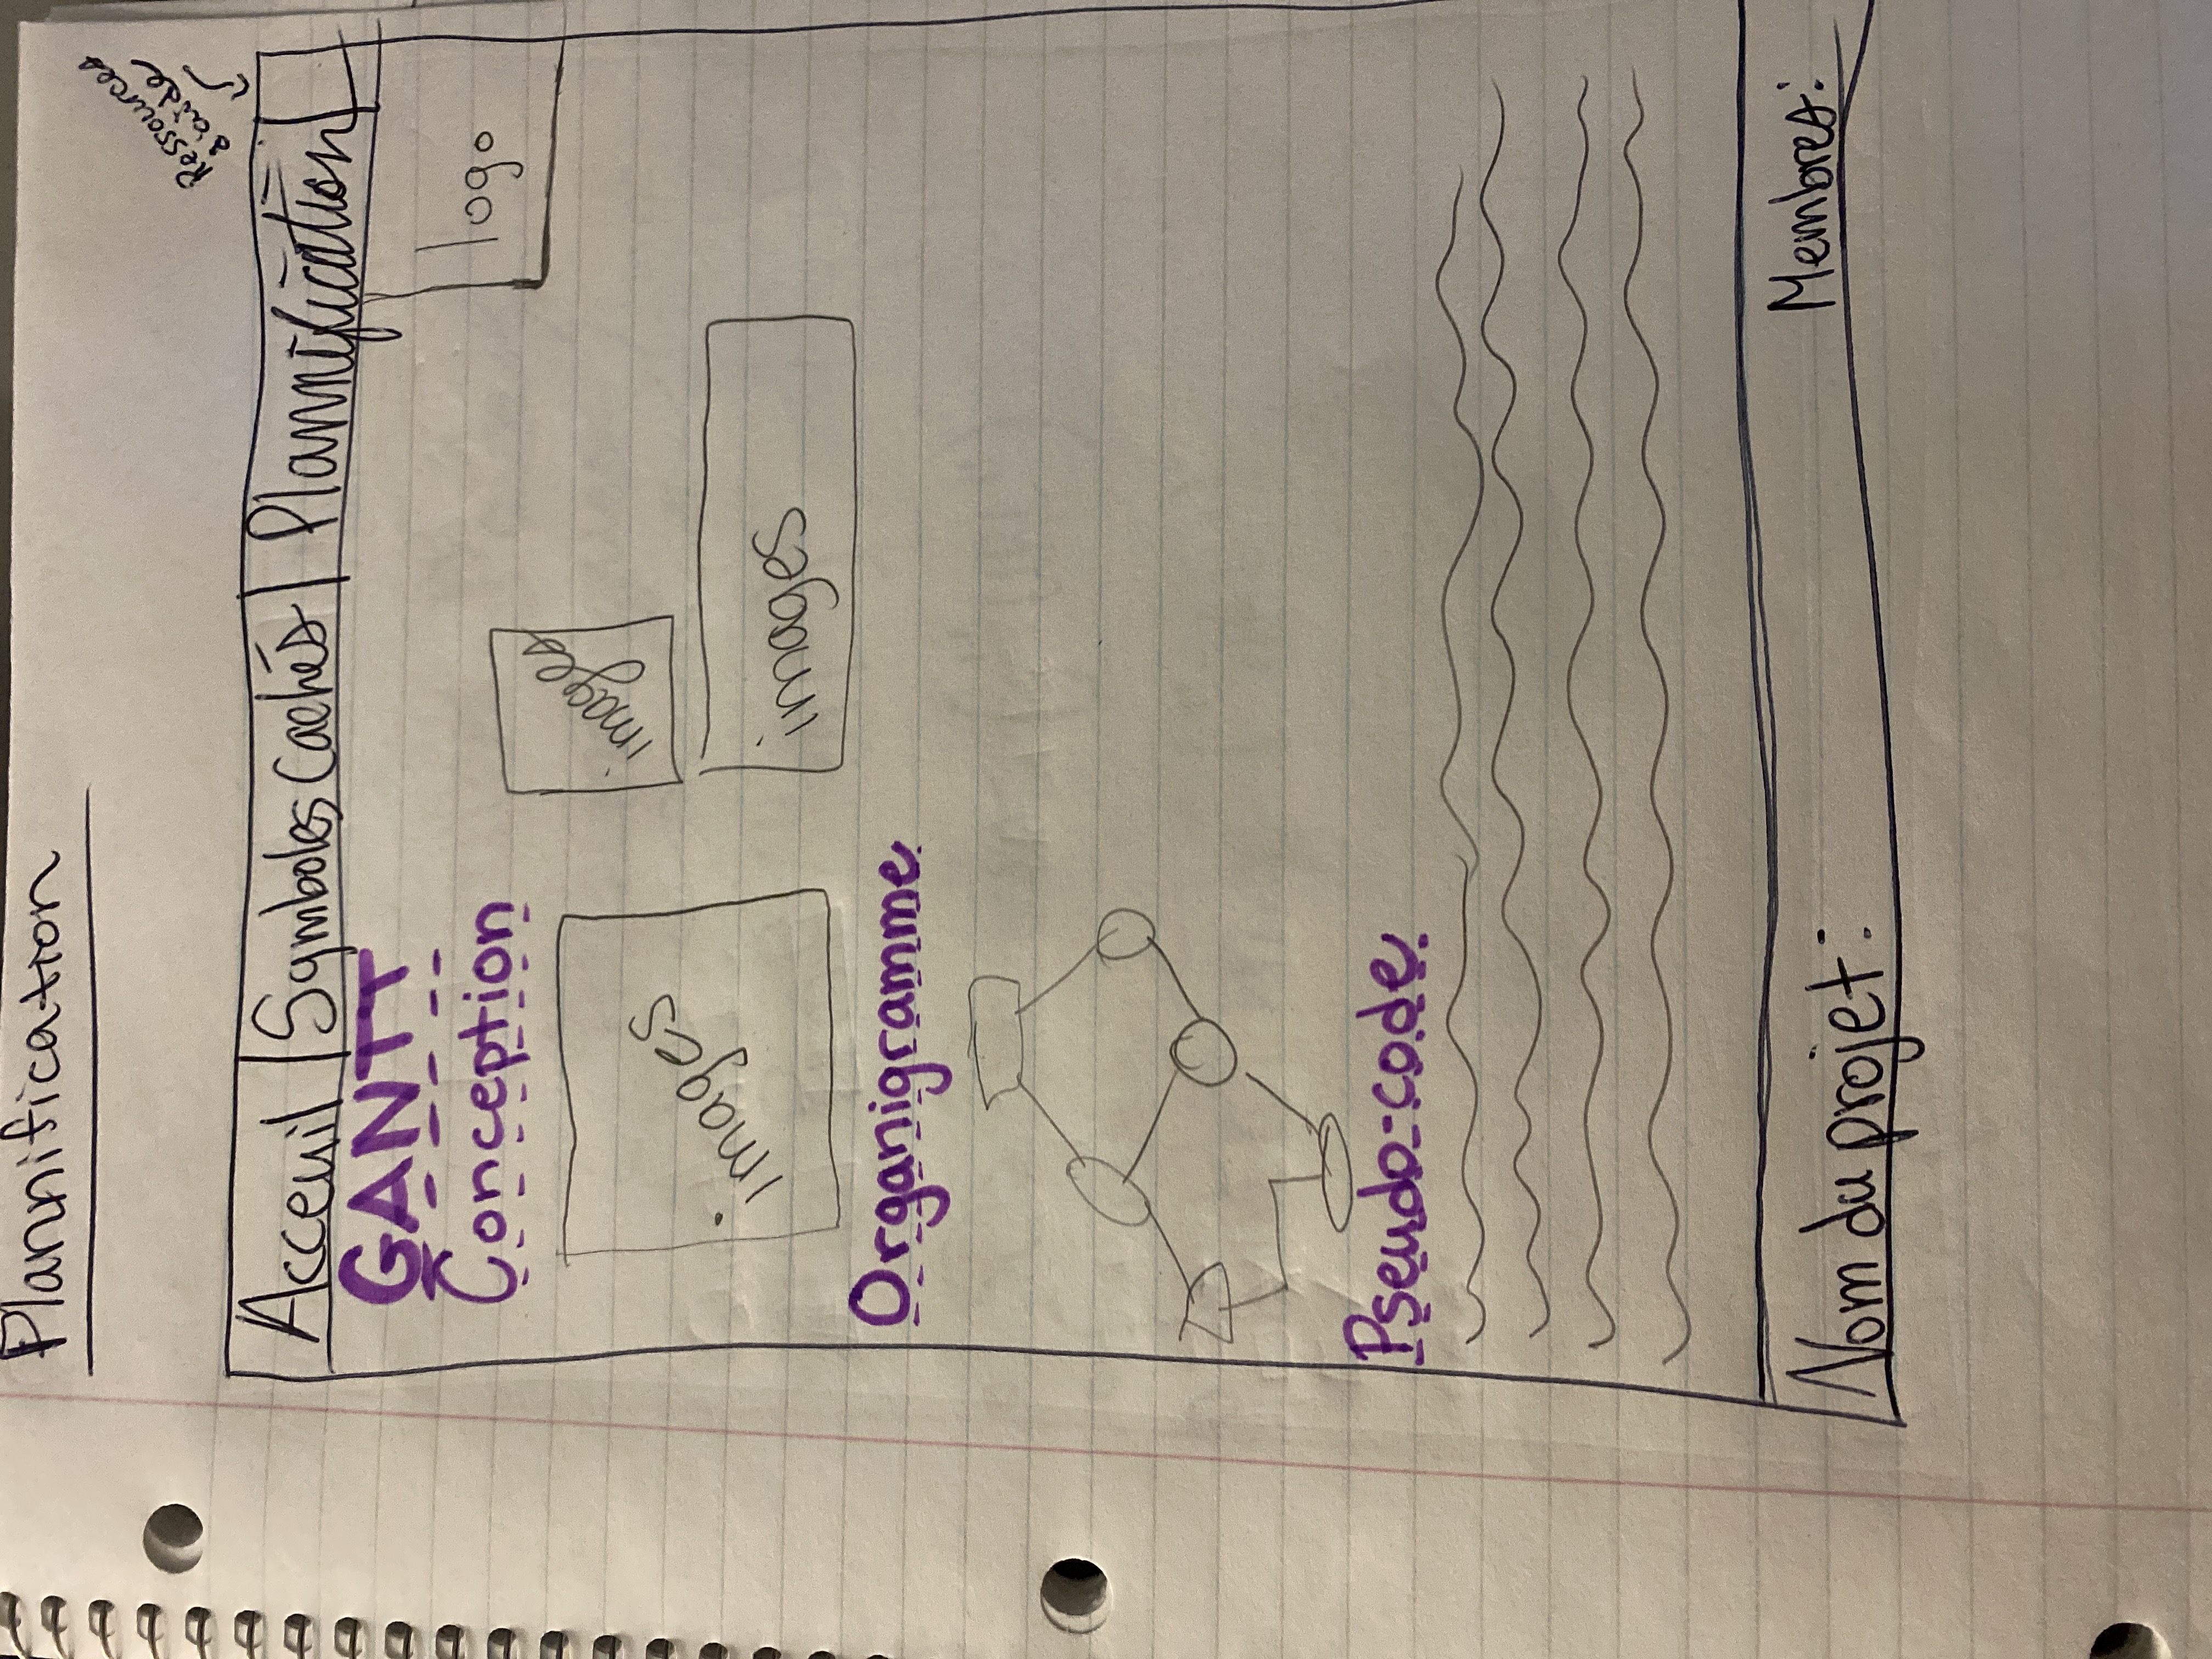 Plannification
Ressources
d'aide
Acceuil Symboles Cachés Plannification
GANTT
Conception
logo
images
images
images
Organigramme
Pseudo-code
Nom du projet:
Membres: